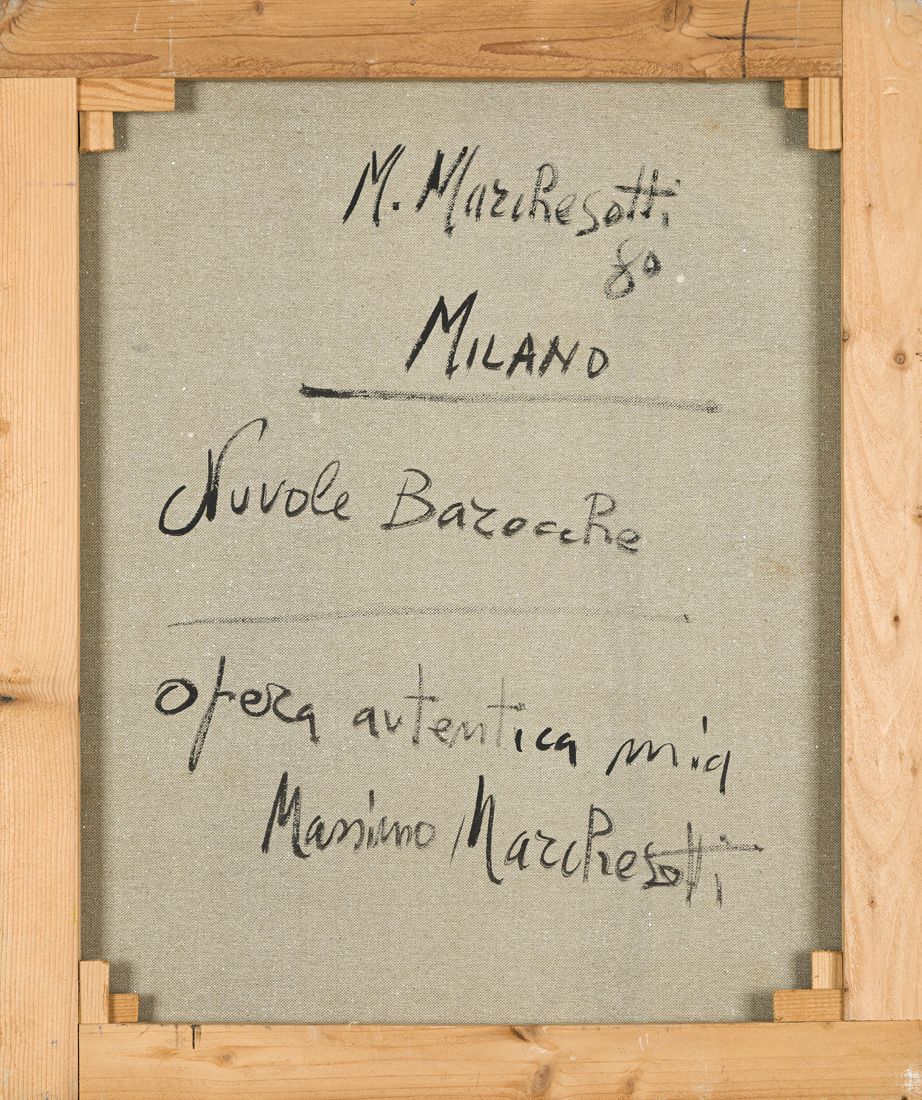 M. Marchesotti
80
MILANO
Nuvole Barocche
opera autentica mia
Massimo Marchesotti